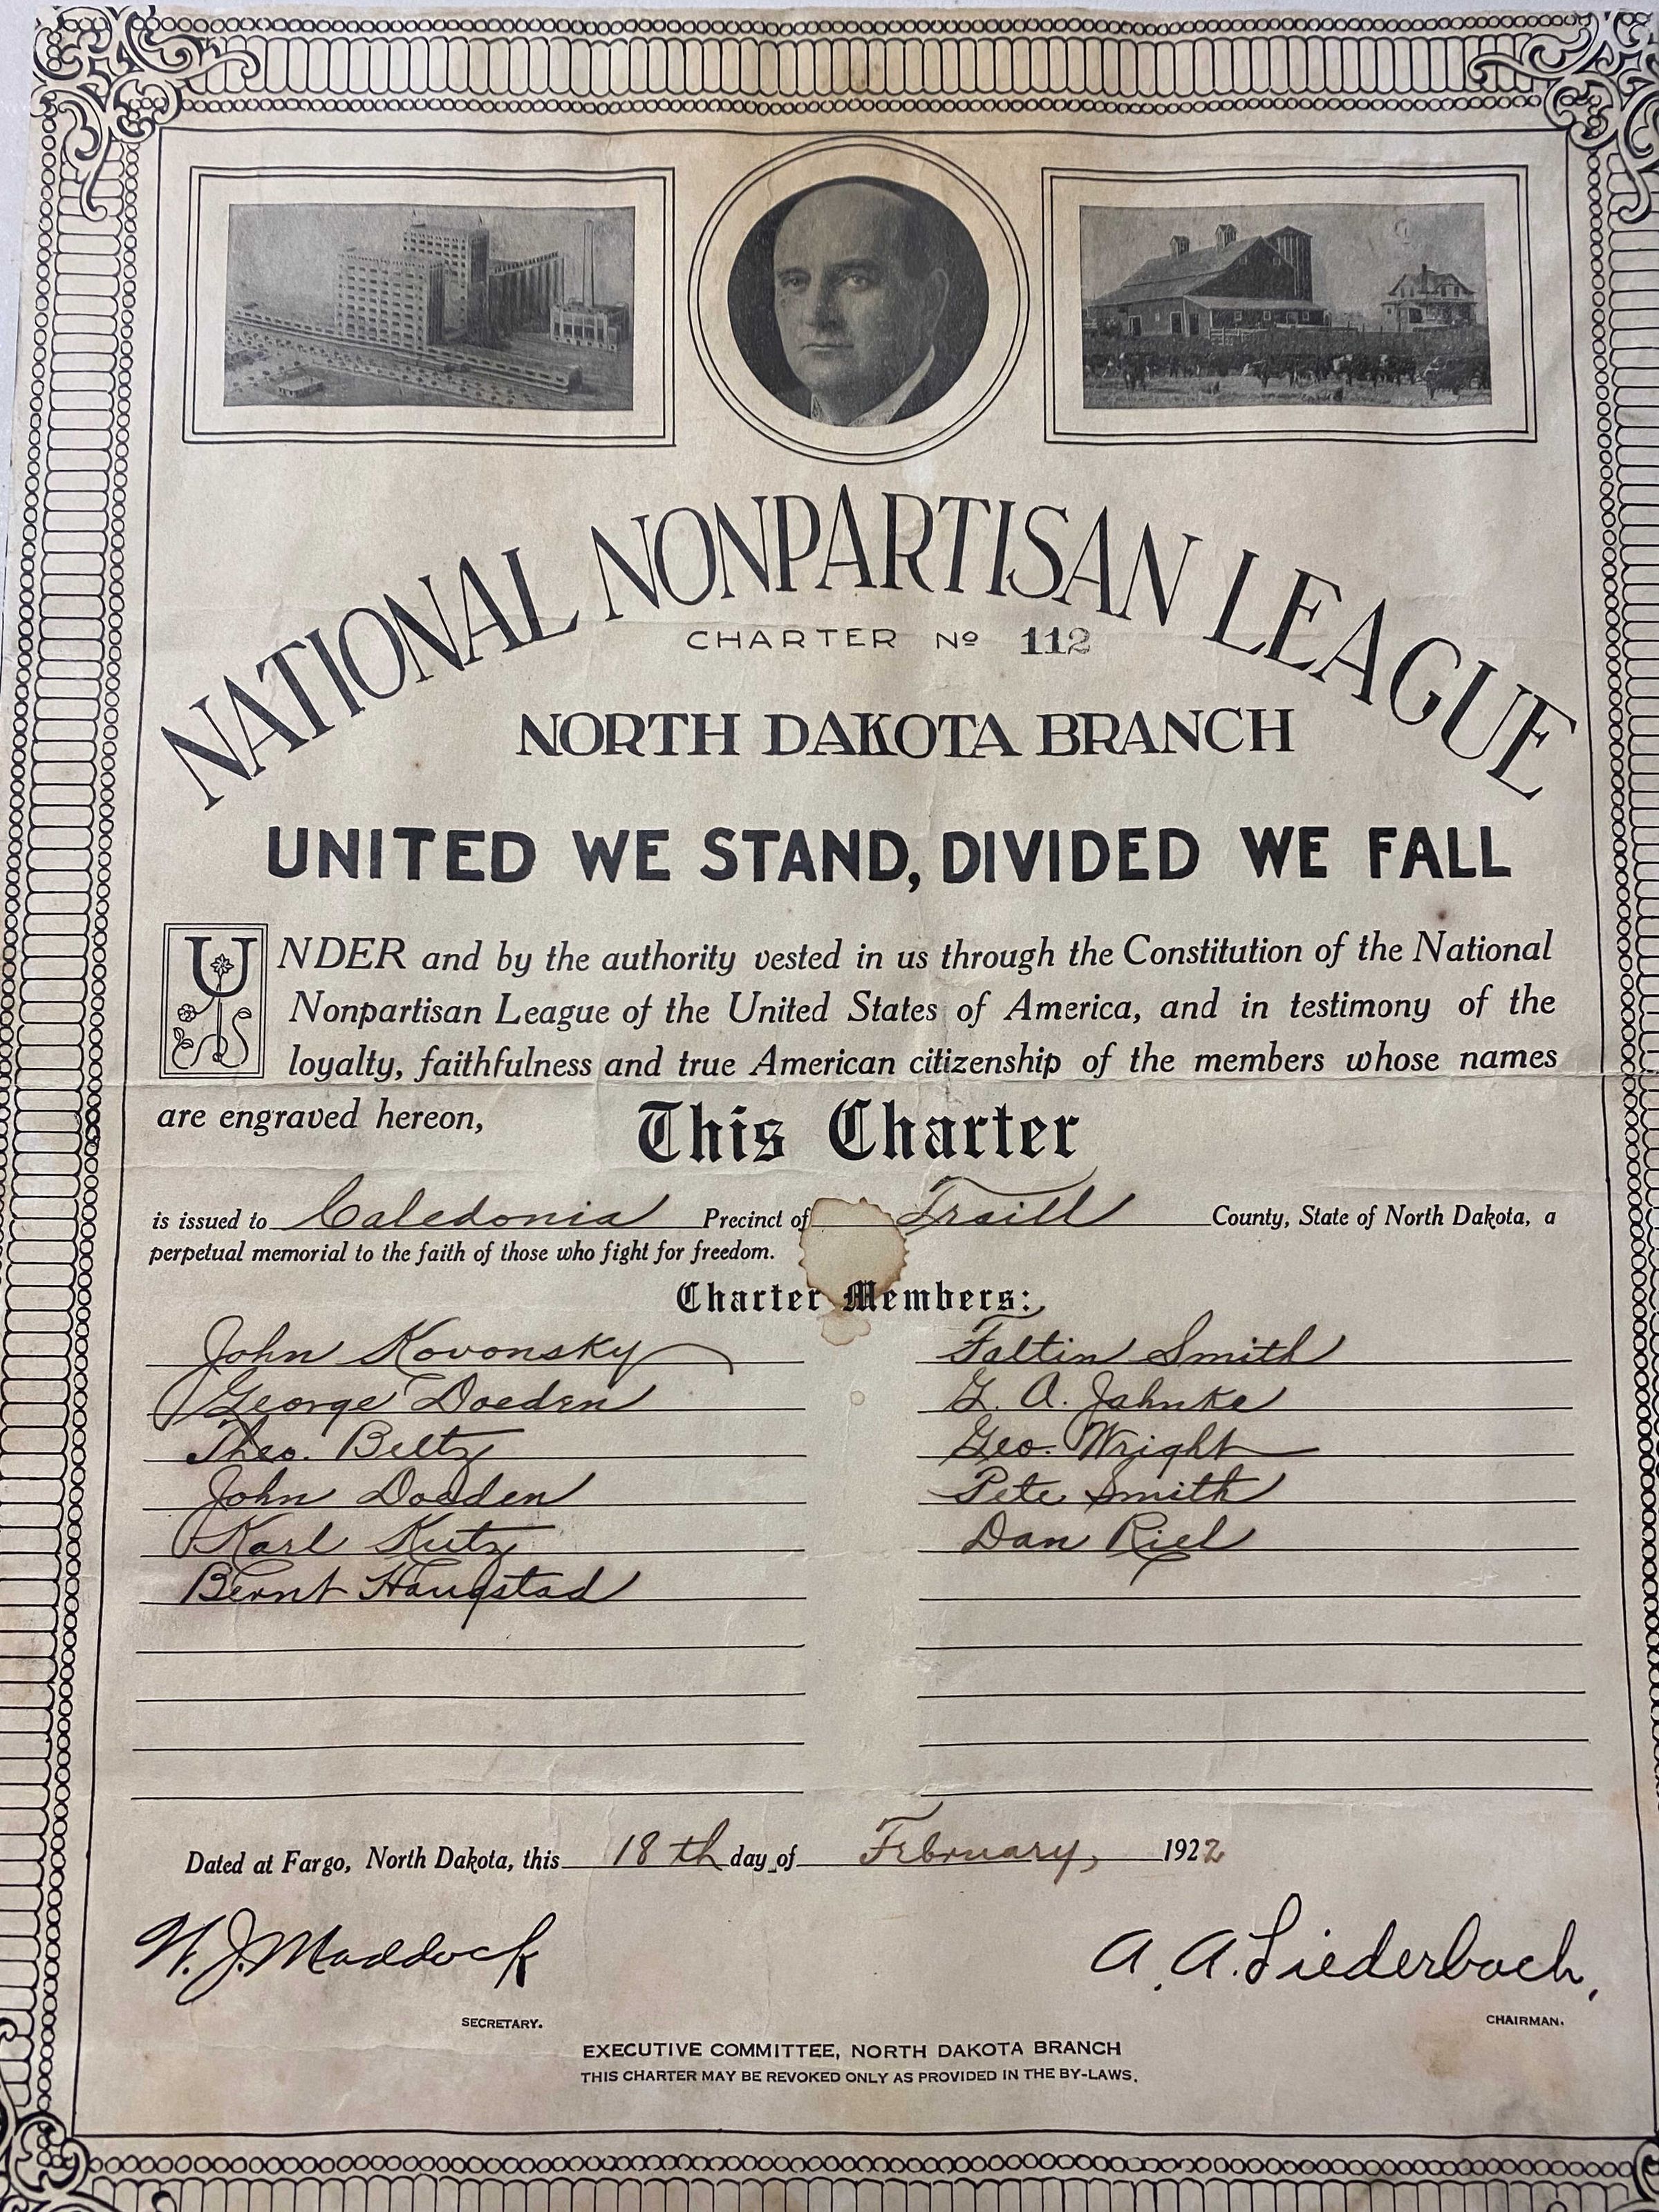 NATIONAL NONPARTISAN LEAGUE
CHARTER Nº 112
NORTH DAKOTA BRANCH
UNITED WE STAND, DIVIDED WE FALL
UNDER and by the authority vested in us through the Constitution of the National
Nonpartisan League of the United States of America, and in testimony of the
loyalty, faithfulness and true American citizenship of the members whose names
are engraved hereon, This Charter
is issued to Caledonia Precinct of Traill County, State of North Dakota, a
perpetual memorial to the faith of those who fight for freedom.
Charter Members:
John Kovonsky
George Doeden
Theo. Beltz
John Doeden
Karl Kutz
Bernt Haugstad
Faltin Smith
G. A. Jahnke
Geo. Wright
Pete Smith
Dan Riel
Dated at Fargo, North Dakota, this 18th day of February, 1922
W. J. Maddock
SECRETARY.
A. A. Liederbach,
CHAIRMAN.
EXECUTIVE COMMITTEE, NORTH DAKOTA BRANCH
THIS CHARTER MAY BE REVOKED ONLY AS PROVIDED IN THE BY-LAWS.